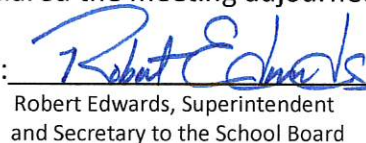 the meeting adjourne
: Robert Edwards
Robert Edwards, Superintendent
and Secretary to the School Board